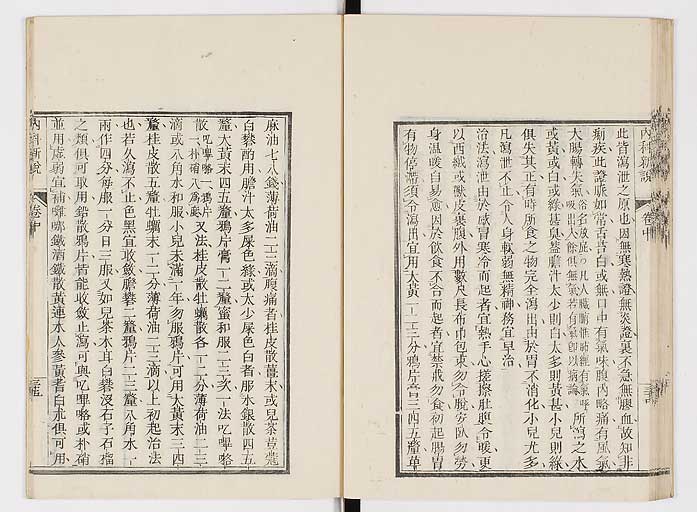 此皆瀉泄之原也因無寒熱證無炎證裏不急無膿血故知非
痢疾此證脈如常舌苔白或無口中有氣味腹內略痛有風氣
大腸轉失氣俗名放屁凡人臟腑惟肺經有氣呼吸出入餘俱無氣若有氣卽以病論所瀉之水
或黃或白或綠甚臭益膽汁太少則白太多則黃甚小兒則綠
俱失其正有時所食之物完全瀉出由於胃不消化小兒尤多
凡瀉泄不止令人身軟弱無精神務宜早治
治法瀉泄由於感冒寒冷而起者宜熱手心搓擦肚腹令暖更
以西絨或獸皮裹腹外用數尺長布巾包束勿令脫安臥勿勞
身溫暖自易愈因於飲食不合而起者宜禁戒勿食初起腸胃
有物停滯須令瀉出宜用大黃一二三分鴉片膏三四五釐草
內科新說
卷中
麻油七八錢薄荷油二三滴腹痛者桂皮散薑末或兒茶荳蔻
白礬酌用膽汁太多屎色綠或太少屎色白者服水銀散四五
釐大黃末四五釐鴉片膏一二釐蜜和服二三次一法吃嗶咯
散吃嗶咯一鴉片一朴硝八爲散又法桂皮散牡蠣散各一二分薄荷油二三
滴或八角水和服小兒未滿一年勿服鴉片可用大黃末三四
釐桂皮散五釐牡蠣末一二分薄荷油二三滴以上初起治法
也若久瀉不止色黑宜收斂膽礬二釐鴉片二三釐八角水一
兩作四分每服一分日三服又如兒茶木耳白礬沒石子石榴
之類俱可取用鉛散鴉片皆能收斂止瀉可與吃嗶咯或朴硝
並用虛弱宜補雞哪鐵酒鐵散黃連水人參黃耆白朮俱可用
內科新說
卷中